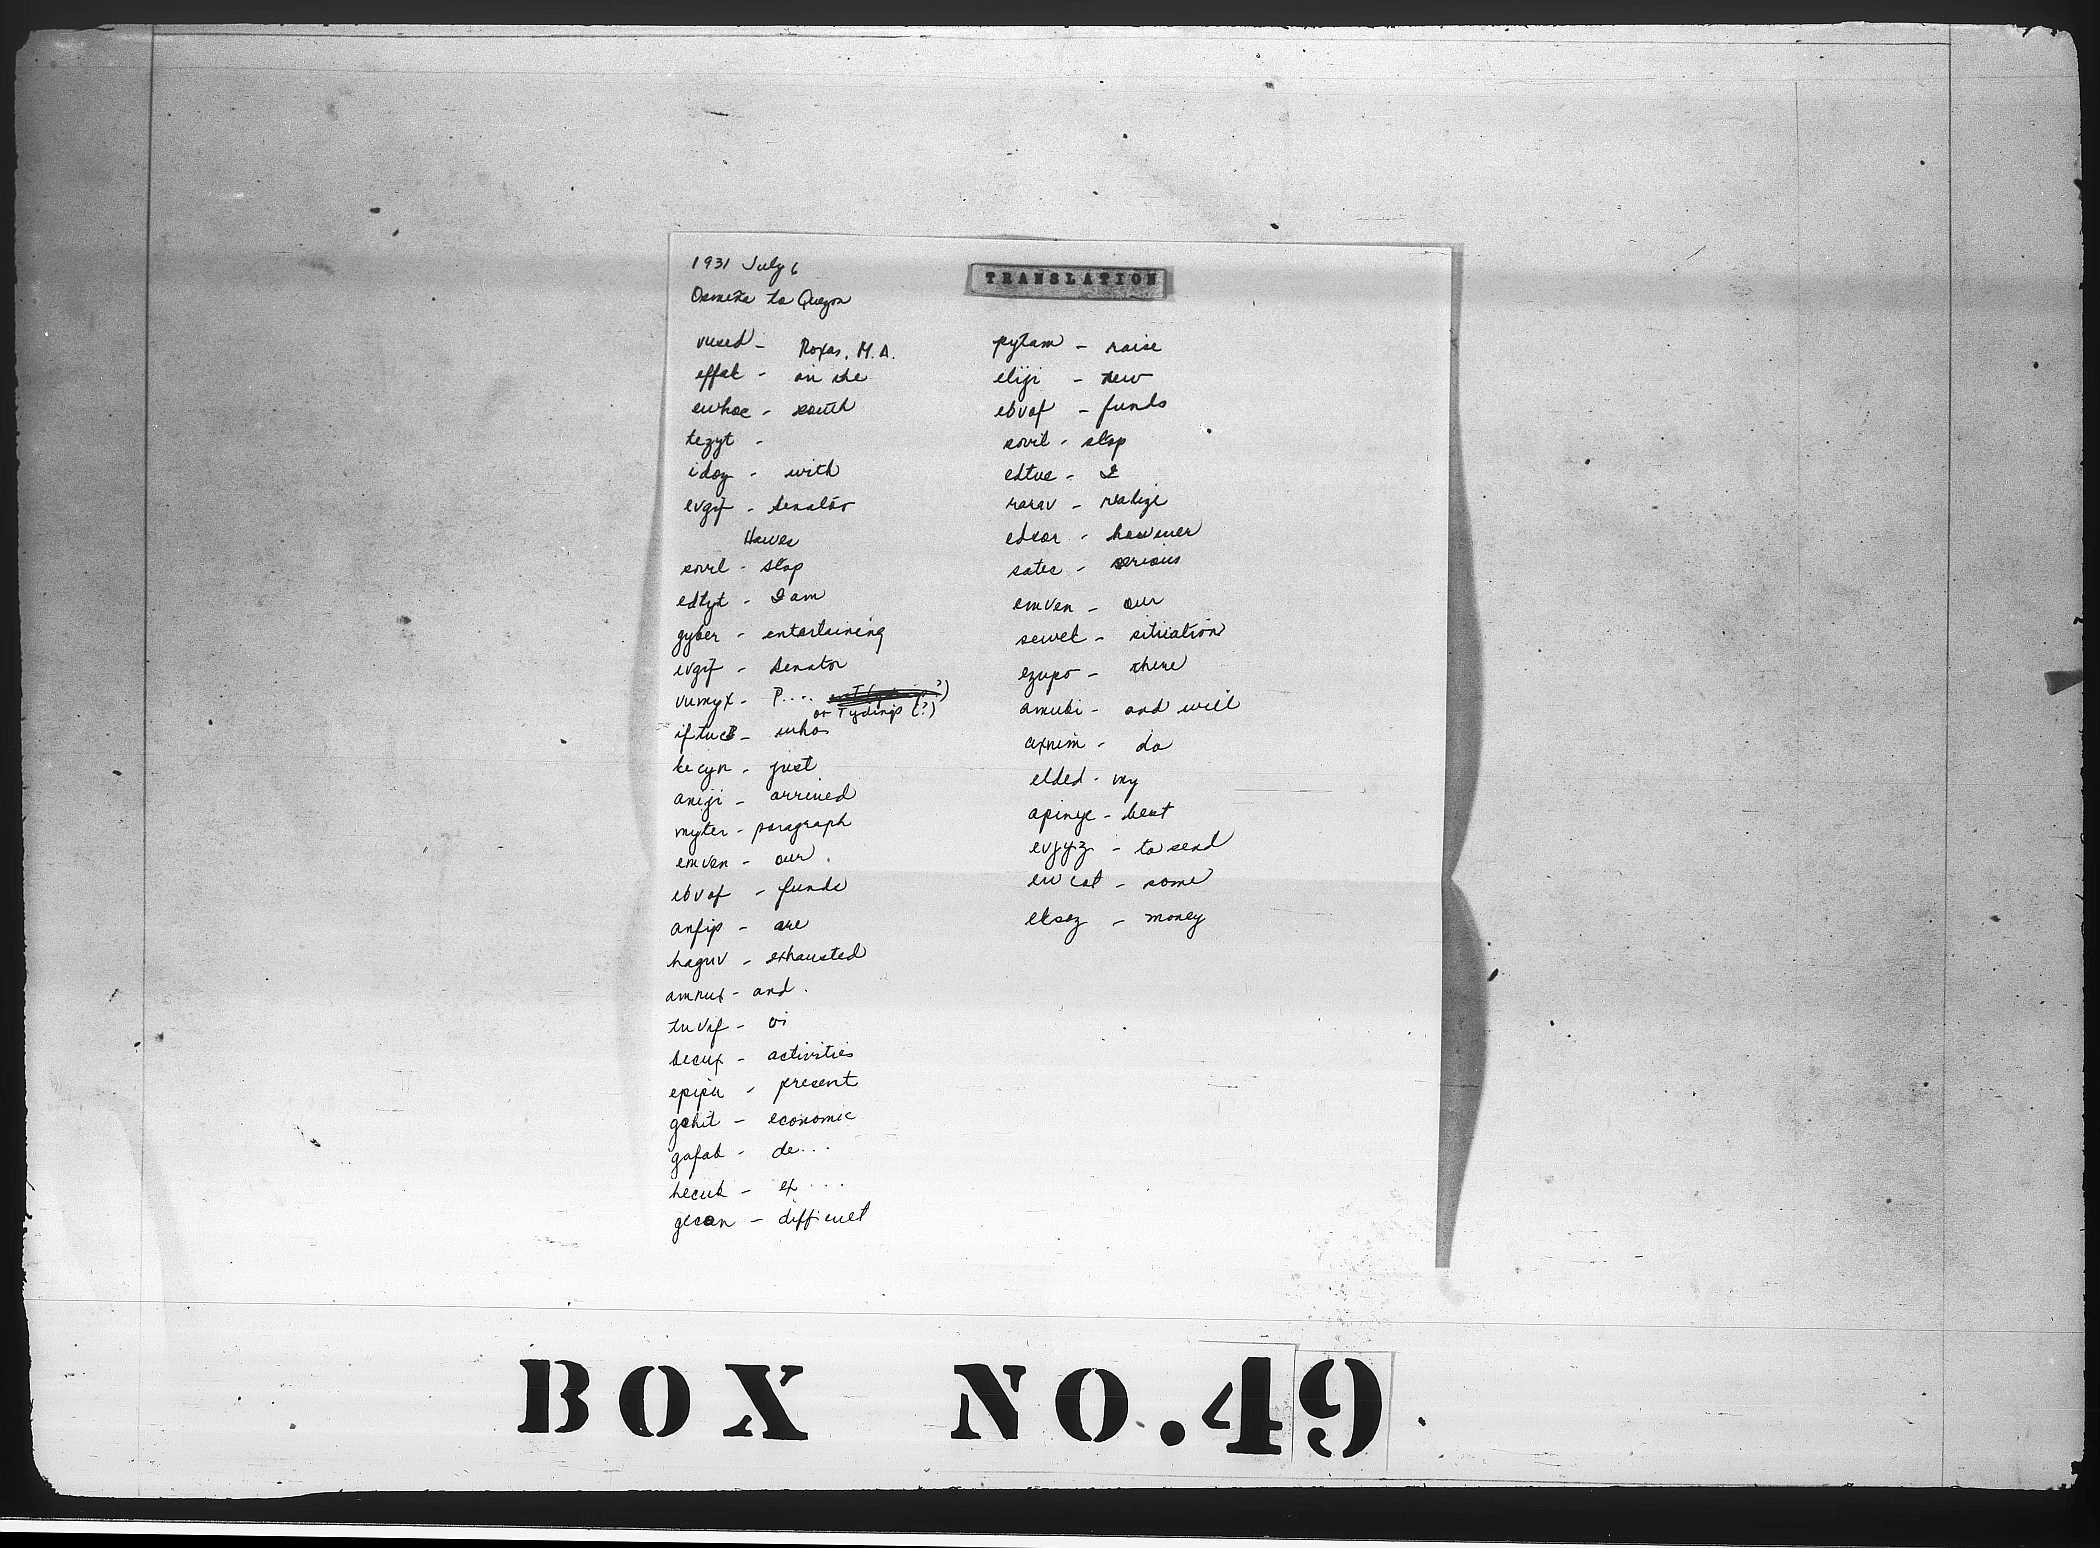 1931 July 6
TRANSLATION
Osmeña to Quezon
vused - Roxas, M.A.
effak - in the
ewhoc - south
tezyt -
idoy - with
evgif - Senator
Hawes
sovil - stop
edtyt - I am
gyber - entertaining
evgif - Senator
vumyx - P....
or Tydings (?)
iftuc - who
kecyn - just
aniji - arrived
myter - paragraph
emven - our
ebvof - funds
anfip - are
haguv - exhausted
amnub - and
tuvif - oi
becux - activities
epipu - present
gohit - economic
gafab - de...
hecub - ex ....
gecan - difficult
pytam - raise
eliji - new
ebvof - funds
sovil - stop
edtue - I
rarav - realize
edsor - however
satec - serious
emven - our
sewel - situation
ezupo - there
amubi - and will
axnim - do
elded - my
apinyc - best
evjyz - to send
ewcat - some
eksoz - money
BOX NO. 49